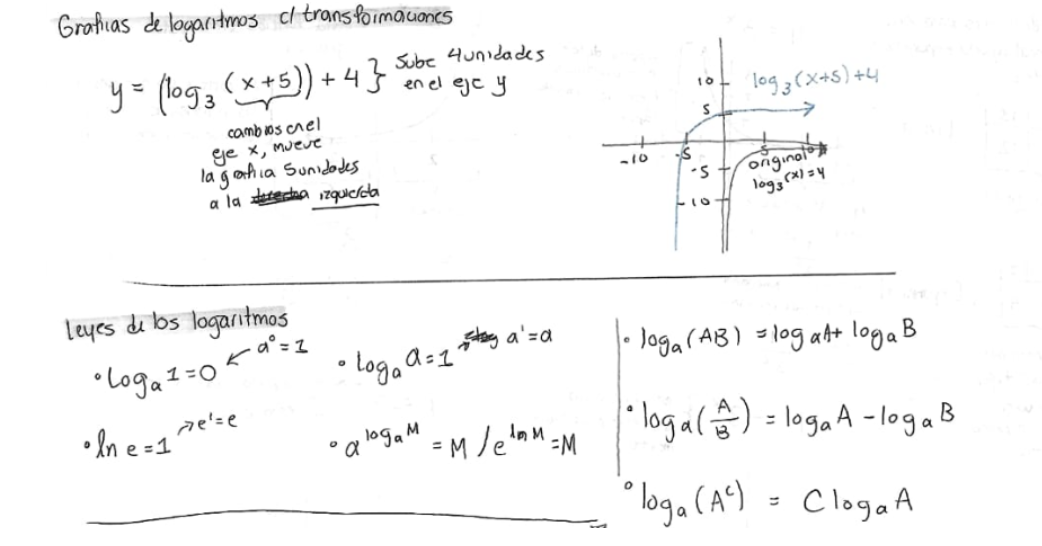 Grafias de logaritmos c/ transformaciones
y = (log₃ (x+5)) + 4 } Sube 4 unidades
en el eje y
cambios en el
eje x, mueve
la grafia 5 unidades
a la derecha izquierda
log₃(x+5)+4
10
5
-10
-5
5
10
-5
-10
original
log₃(x)=y
leyes de los logaritmos
• logₐ 1 = 0 ← a⁰ = 1
• logₐ a = 1 → a¹ = a
• ln e = 1 → e¹ = e
• a^logₐM = M / e^ln M = M
• logₐ(AB) = logₐA + logₐB
• logₐ(A/B) = logₐA - logₐB
• logₐ(Aᶜ) = C logₐA